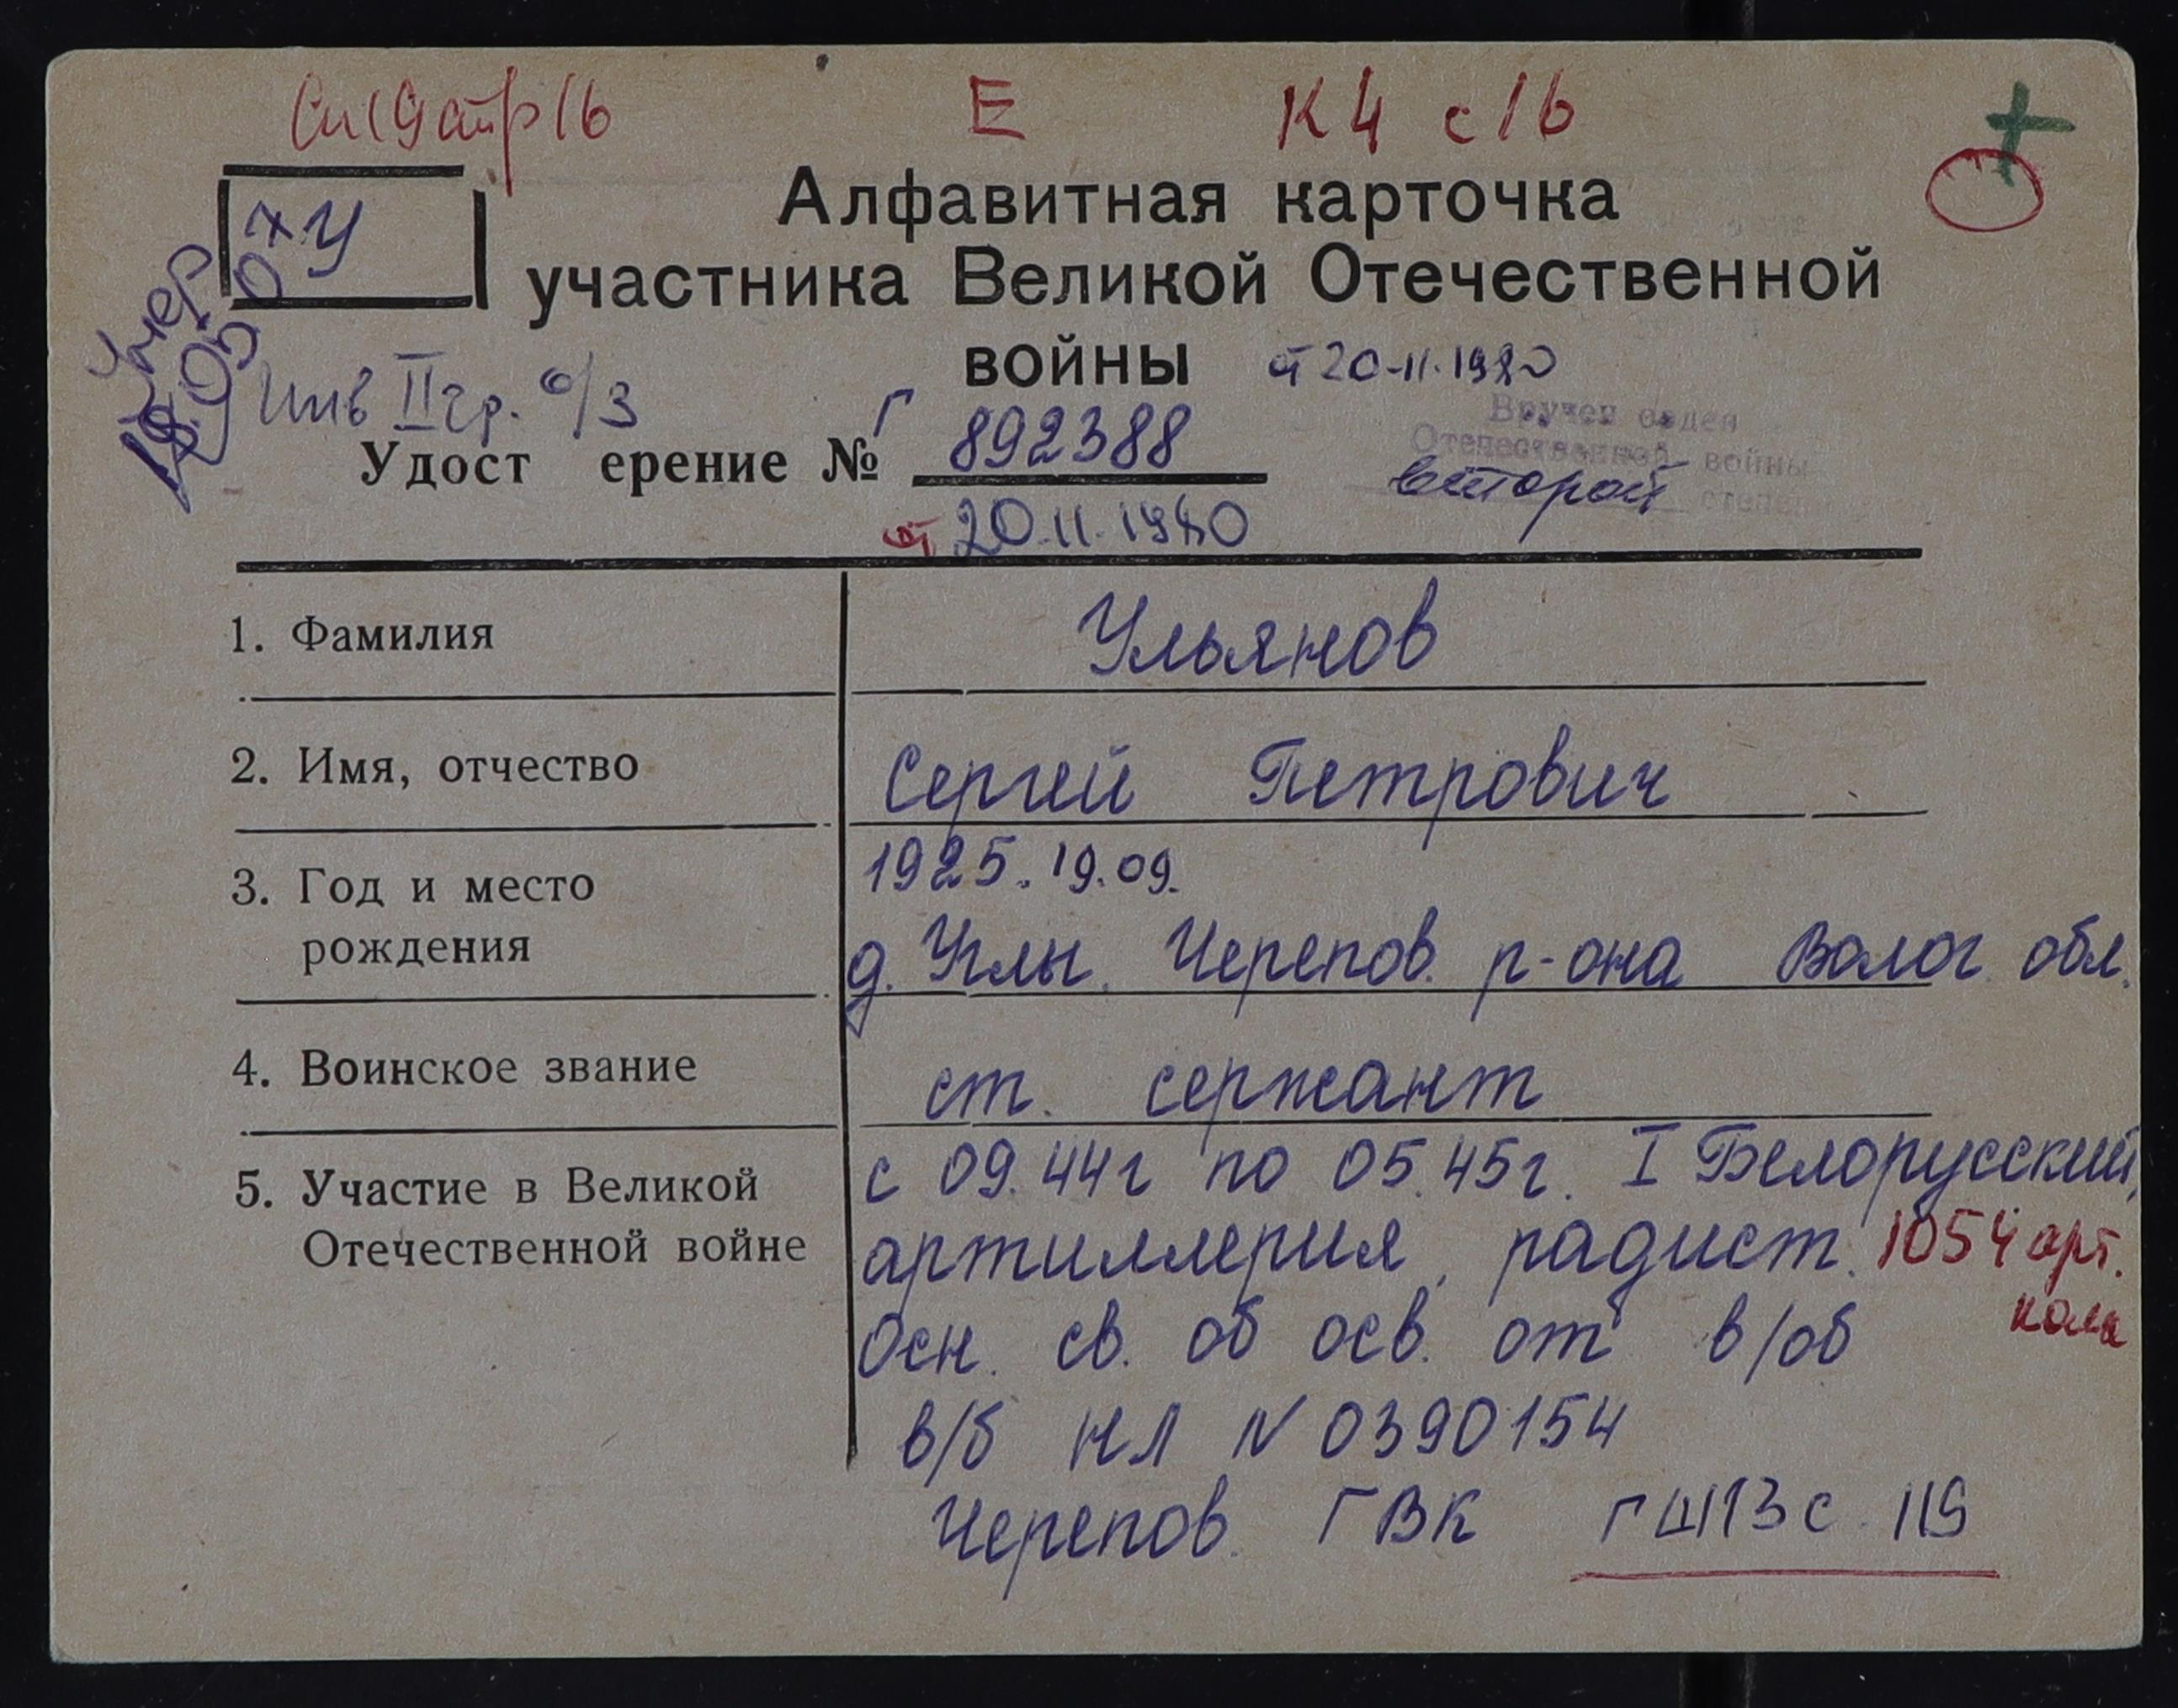 Е К4 с 16
У
Алфавитная карточка
участника Великой Отечественной
войны от 20-11.1980
умер
18.05.07
Инв II гр. о/з
Удостерение № Г 892388
от 20.11.1980
Вручен орден
Отечественной войны
второй степени
1. Фамилия Ульянов
2. Имя, отчество Сергей Петрович
3. Год и место 1925. 19.09.
рождения д. Углы. Черепов. р-она Волог. обл.
4. Воинское звание ст. сержант
5. Участие в Великой с 09.44г по 05.45г. I Белорусский,
Отечественной войне артиллерия, радист. 1054 арт.
Осн. св. об осв. от в/об
в/б НЛ N 0390154
Черепов. ГВК ГШ13 с. 119